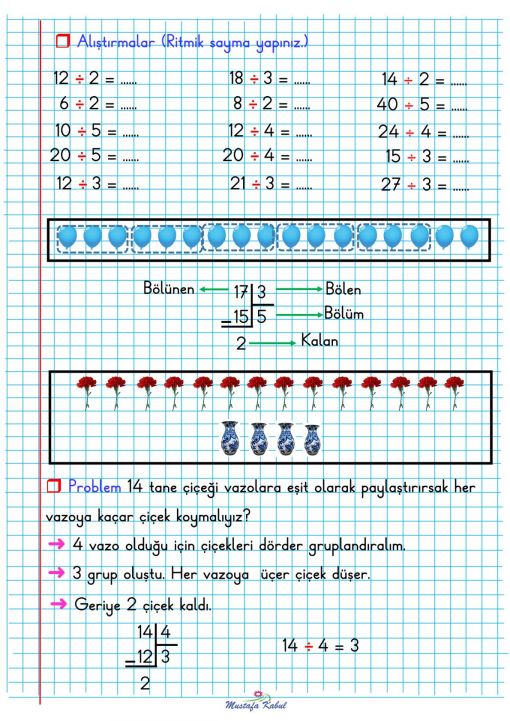 Alıştırmalar (Ritmik sayma yapınız.)
12 ÷ 2 = ...... 18 ÷ 3 = ...... 14 ÷ 2 = ......
6 ÷ 2 = ...... 8 ÷ 2 = ...... 40 ÷ 5 = ......
10 ÷ 5 = ...... 12 ÷ 4 = ...... 24 ÷ 4 = ......
20 ÷ 5 = ...... 20 ÷ 4 = ...... 15 ÷ 3 = ......
12 ÷ 3 = ...... 21 ÷ 3 = ...... 27 ÷ 3 = ......
Bölünen 17 3 Bölen
- 15 5 Bölüm
2 Kalan
Problem 14 tane çiçeği vazolara eşit olarak paylaştırırsak her
vazoya kaçar çiçek koymalıyız?
4 vazo olduğu için çiçekleri dörder gruplandıralım.
3 grup oluştu. Her vazoya üçer çiçek düşer.
Geriye 2 çiçek kaldı.
14 4
- 12 3 14 ÷ 4 = 3
2
Mustafa Kabul